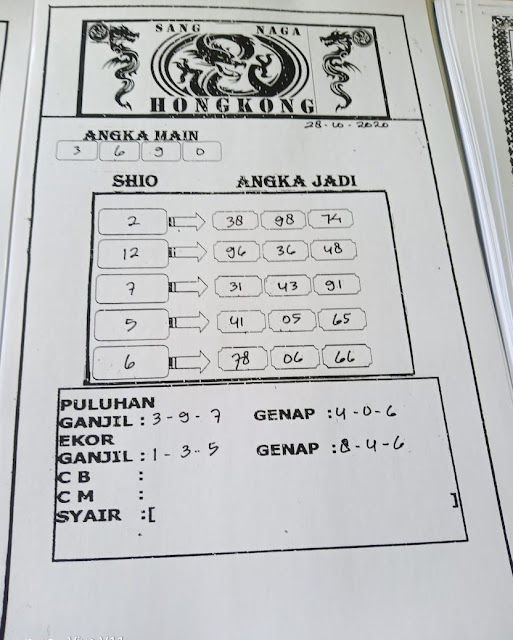 SANG NAGA
HONGKONG
28-10-2020
ANGKA MAIN
3 6 9 0
SHIO ANGKA JADI
2 38 98 74
12 96 36 48
7 31 43 91
5 41 05 65
6 78 06 66
PULUHAN
GANJIL : 3-9-7 GENAP : 4-0-6
EKOR
GANJIL : 1-3-5 GENAP : 8-4-6
C B :
C M :
SYAIR :[ ]